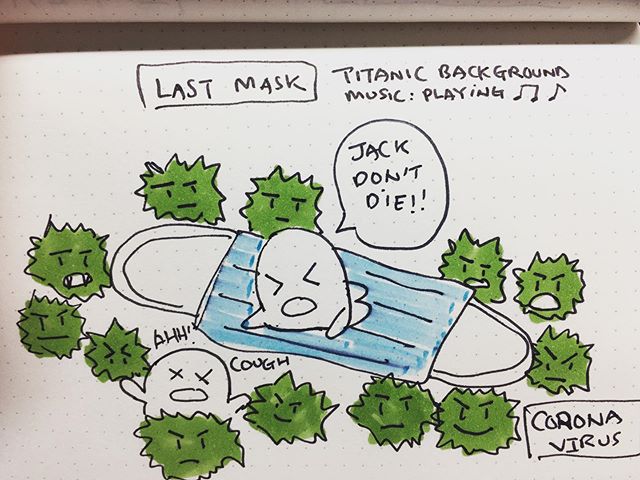 LAST MASK
TITANIC BACKGROUND
MUSIC: PLAYING
JACK
DON'T
DIE!!
AHH!
COUGH
CORONA
VIRUS